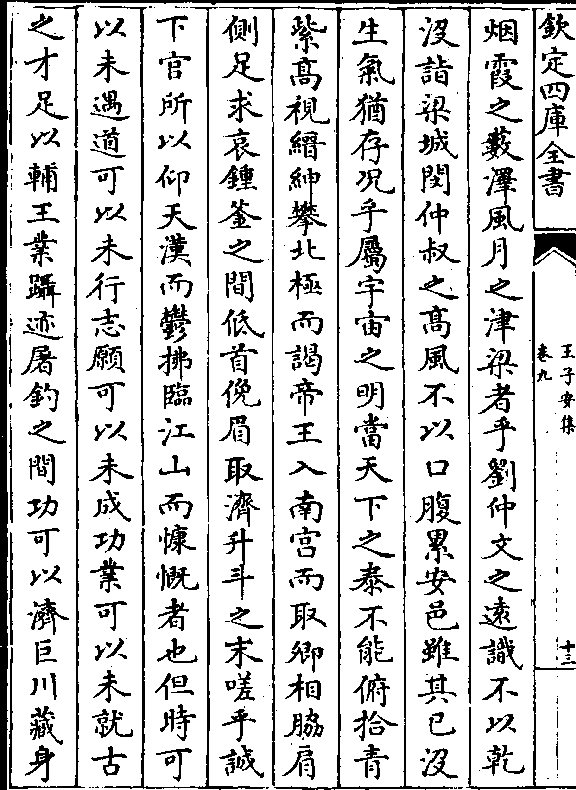 欽定四庫全書
王子安集
卷九
十三
烟霞之藪澤風月之津梁者乎劉仲文之遠識不以乾
沒詣梁城閔仲叔之高風不以口腹累安邑雖其已沒
生氣猶存况乎屬宇宙之明當天下之泰不能俯拾青
紫高視縉紳攀北極而謁帝王入南宫而取卿相脇肩
側足求哀鍾釜之間低首俛眉取濟升斗之末嗟乎誠
下官所以仰天漢而鬱拂臨江山而慷慨者也但時可
以未遇道可以未行志願可以未成功業可以未就古
之才足以輔王業躡迹屠釣之間功可以濟巨川藏身